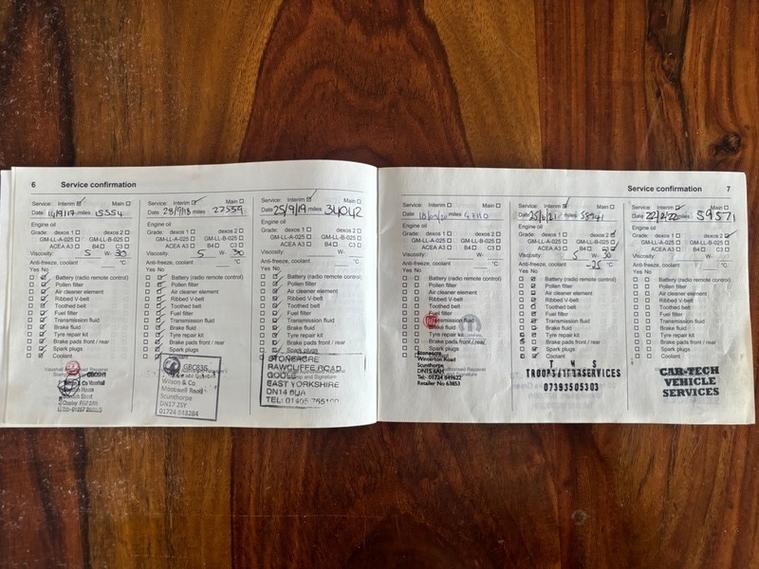 6 Service confirmation
Service: Interim Main
Date 14/9/17 miles 15554
Engine oil
Grade: dexos 1 dexos 2
GM-LL-A-025 GM-LL-B-025
ACEA A3 B4 C3
Viscosity: 5 W- 30
Anti-freeze, coolant °C
Yes No
Battery (radio remote control)
Pollen filter
Air cleaner element
Ribbed V-belt
Toothed belt
Fuel filter
Transmission fluid
Brake fluid
Tyre repair kit
Brake pads front / rear
Spark plugs
Coolant
Service: Interim Main
Date 28/9/18 miles 27559
Engine oil
Grade: dexos 1 dexos 2
GM-LL-A-025 GM-LL-B-025
ACEA A3 B4 C3
Viscosity: 5 W- 30
Anti-freeze, coolant °C
Yes No
Battery (radio remote control)
Pollen filter
Air cleaner element
Ribbed V-belt
Toothed belt
Fuel filter
Transmission fluid
Brake fluid
Tyre repair kit
Brake pads front / rear
Spark plugs
Wilson & Co
Scunthorpe
DN17 2SY
01724
Service: Interim Main
Date 25/9/19 miles 34042
Engine oil
Grade: dexos 1 dexos 2
GM-LL-A-025 GM-LL-B-025
ACEA A3 B4 C3
Viscosity: W-
Anti-freeze, coolant °C
Yes No
Battery (radio remote control)
Pollen filter
Air cleaner element
Ribbed V-belt
Toothed belt
Fuel filter
Transmission fluid
Brake fluid
Tyre repair kit
Brake pads front / rear
Spark plugs
STONEACRE
RAWCLIFFE ROAD
GOOLE
EAST YORKSHIRE
DN14 8UA
TEL: 01405
Service confirmation 7
Service: Interim Main
Date miles
Engine oil
Grade: dexos 1 dexos 2
GM-LL-A-025 GM-LL-B-025
ACEA A3 B4 C3
Viscosity: W-
Anti-freeze, coolant °C
Yes No
Battery (radio remote control)
Pollen filter
Air cleaner element
Ribbed V-belt
Toothed belt
Fuel filter
Transmission fluid
Brake fluid
Tyre repair kit
Brake pads front / rear
Spark plugs
Stoneacre
Winterton Road
Scunthorpe
Service: Interim Main
Date miles
Engine oil
Grade: dexos 1 dexos 2
GM-LL-A-025 GM-LL-B-025
ACEA A3 B4 C3
Viscosity: 5 W- 30
Anti-freeze, coolant -25 °C
Yes No
Battery (radio remote control)
Pollen filter
Air cleaner element
Ribbed V-belt
Toothed belt
Fuel filter
Transmission fluid
Brake fluid
Tyre repair kit
Brake pads front / rear
Spark plugs
Coolant
07393505303
Service: Interim Main
Date 22/2/22 miles 59571
Engine oil
Grade: dexos 1 dexos 2
GM-LL-A-025 GM-LL-B-025
ACEA A3 B4 C3
Viscosity: W-
Anti-freeze, coolant °C
Yes No
Battery (radio remote control)
Pollen filter
Air cleaner element
Ribbed V-belt
Toothed belt
Fuel filter
Transmission fluid
Brake fluid
Tyre repair kit
Brake pads front / rear
Spark plugs
Coolant
CAR-TECH
VEHICLE
SERVICES